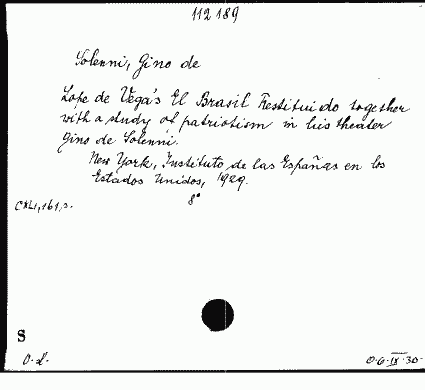 112189
Solenni, Gino de
Lope de Vega's El Brasil Restituido together
with a study of patriotism in his theater
Gino de Solenni.
New York, Instituto de las Españas en los
Estados Unidos, 1929.
8°
S